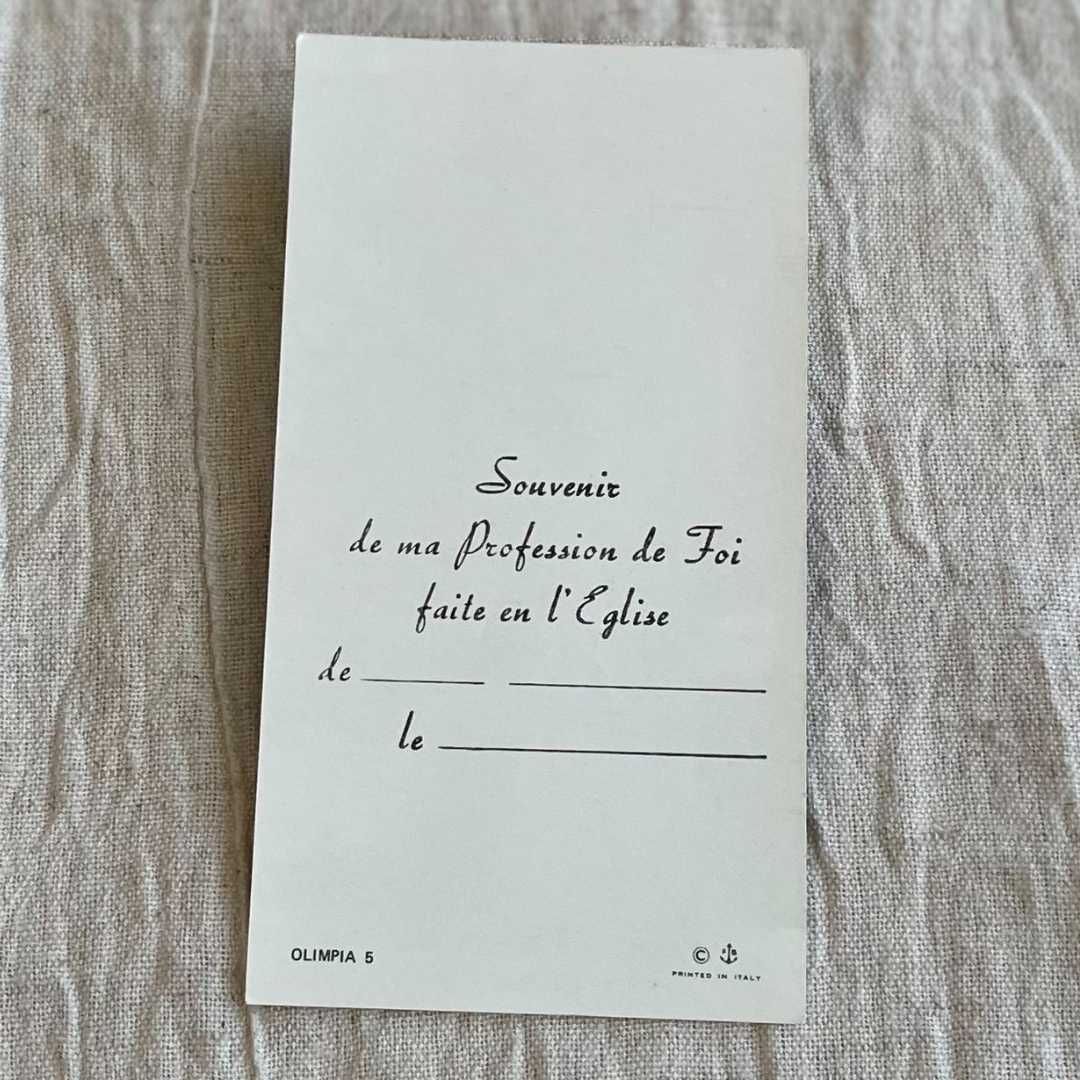 Souvenir
de ma Profession de Foi
faite en l'Eglise
de
le
OLIMPIA 5
©
PRINTED IN ITALY